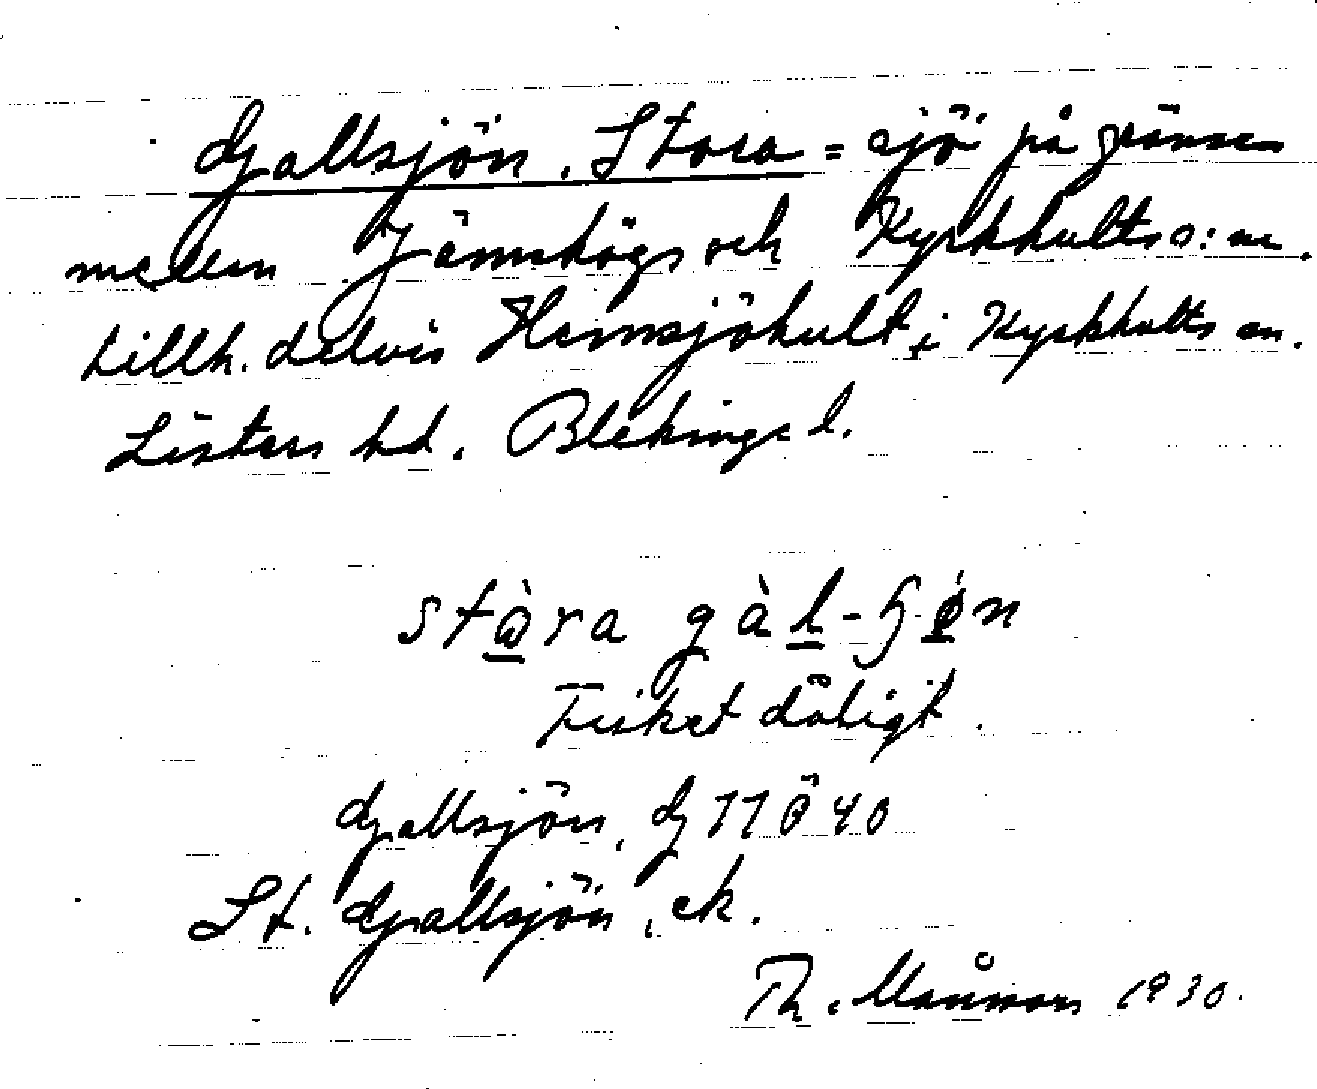 Gallsjön, Stora = sjö på gränsen
mellan Jämshögs och Kyrkhults s:nr.
tillh. delvis Hemsjöhult i Kyrkhults sn.
Listers hd. Blekinge l.
stòra gàl-ʃøn
Fisket dåligt.
Gallsjön, GTTÖ 40
St. Gallsjön, ek.
Th. Månsson 1930.